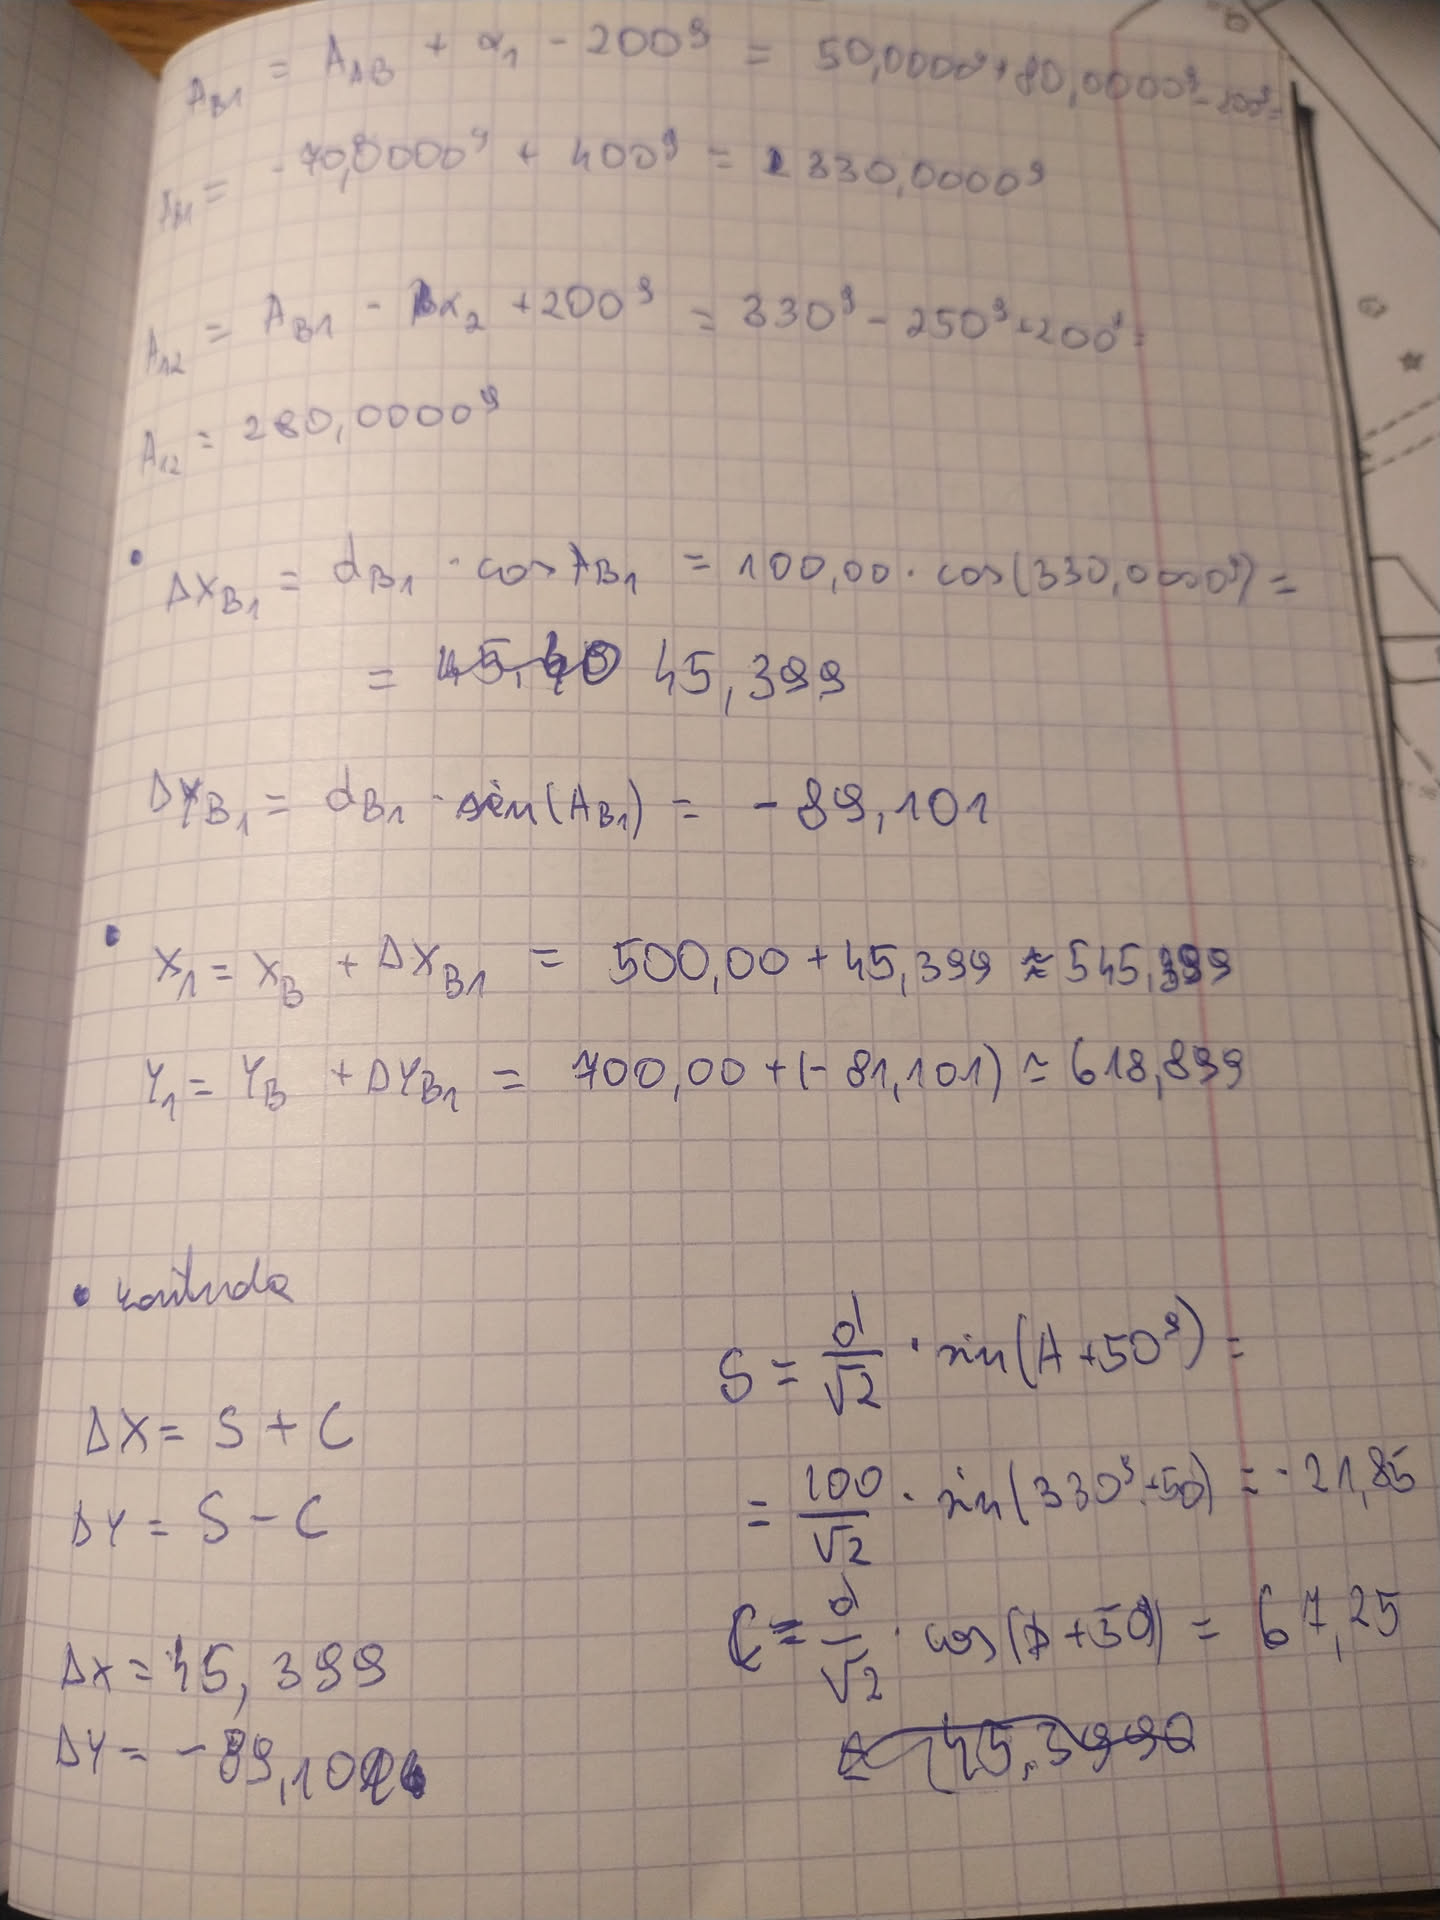 A_B1 = A_AB + α_1 - 200^g = 50,0000^g + 80,0000^g - 200^g =
= -70,0000^g + 400^g = 330,0000^g
A_12 = A_B1 - α_2 + 200^g = 330^g - 250^g + 200^g =
A_12 = 280,0000^g
• ΔX_B1 = d_B1 · cos A_B1 = 100,00 · cos(330,0000^g) =
= 45,399
ΔY_B1 = d_B1 · sin(A_B1) = -89,101
• X_1 = X_B + ΔX_B1 = 500,00 + 45,399 ≈ 545,399
Y_1 = Y_B + ΔY_B1 = 700,00 + (-81,101) ≈ 618,899
• kontrola
S = d/√2 · sin(A+50^g) =
ΔX = S + C
= 100/√2 · sin(330^g+50) = -21,85
ΔY = S - C
C = d/√2 · cos(A+50) = 67,25
ΔX = 45,399
45,3990
ΔY = -89,10